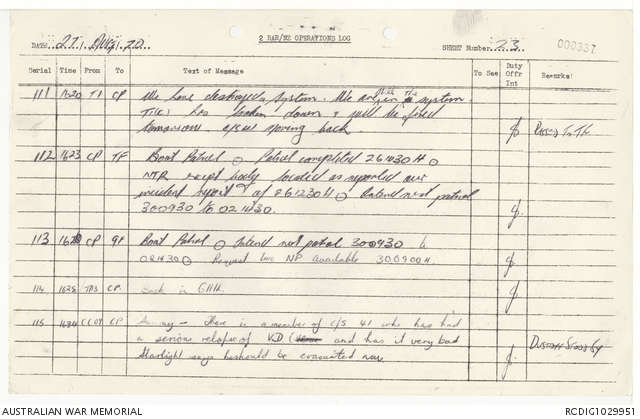 2 RAR/NZ OPERATIONS LOG
DATE: 27 / AUG / 70
SHEET Number: 23
000337
Serial Time From To Text of Message To See Duty Offr Int Remarks
111 1520 T1 CP We have destroyed system. We are in the system
has broken down & will be fixed
tomorrow. moving back Passed To TF
112 1623 CP TF Boat Patrol O Patrol completed 261430H O
NTR except body located as reported our
incident report at 261230H O Intend next patrol
300930 to 021430.
113 CP GP Boat Patrol O Intend next patrol 300930 to
021430 O Request two NP available 300900H.
114 1625 CP Back in GHH.
115 1634 CCOY CP There is a member of C/S 41 who has had
a serious relapse of VD and has it very bad
Starlight says he should be evacuated now Dustoff
AUSTRALIAN WAR MEMORIAL
RCDIG1029951